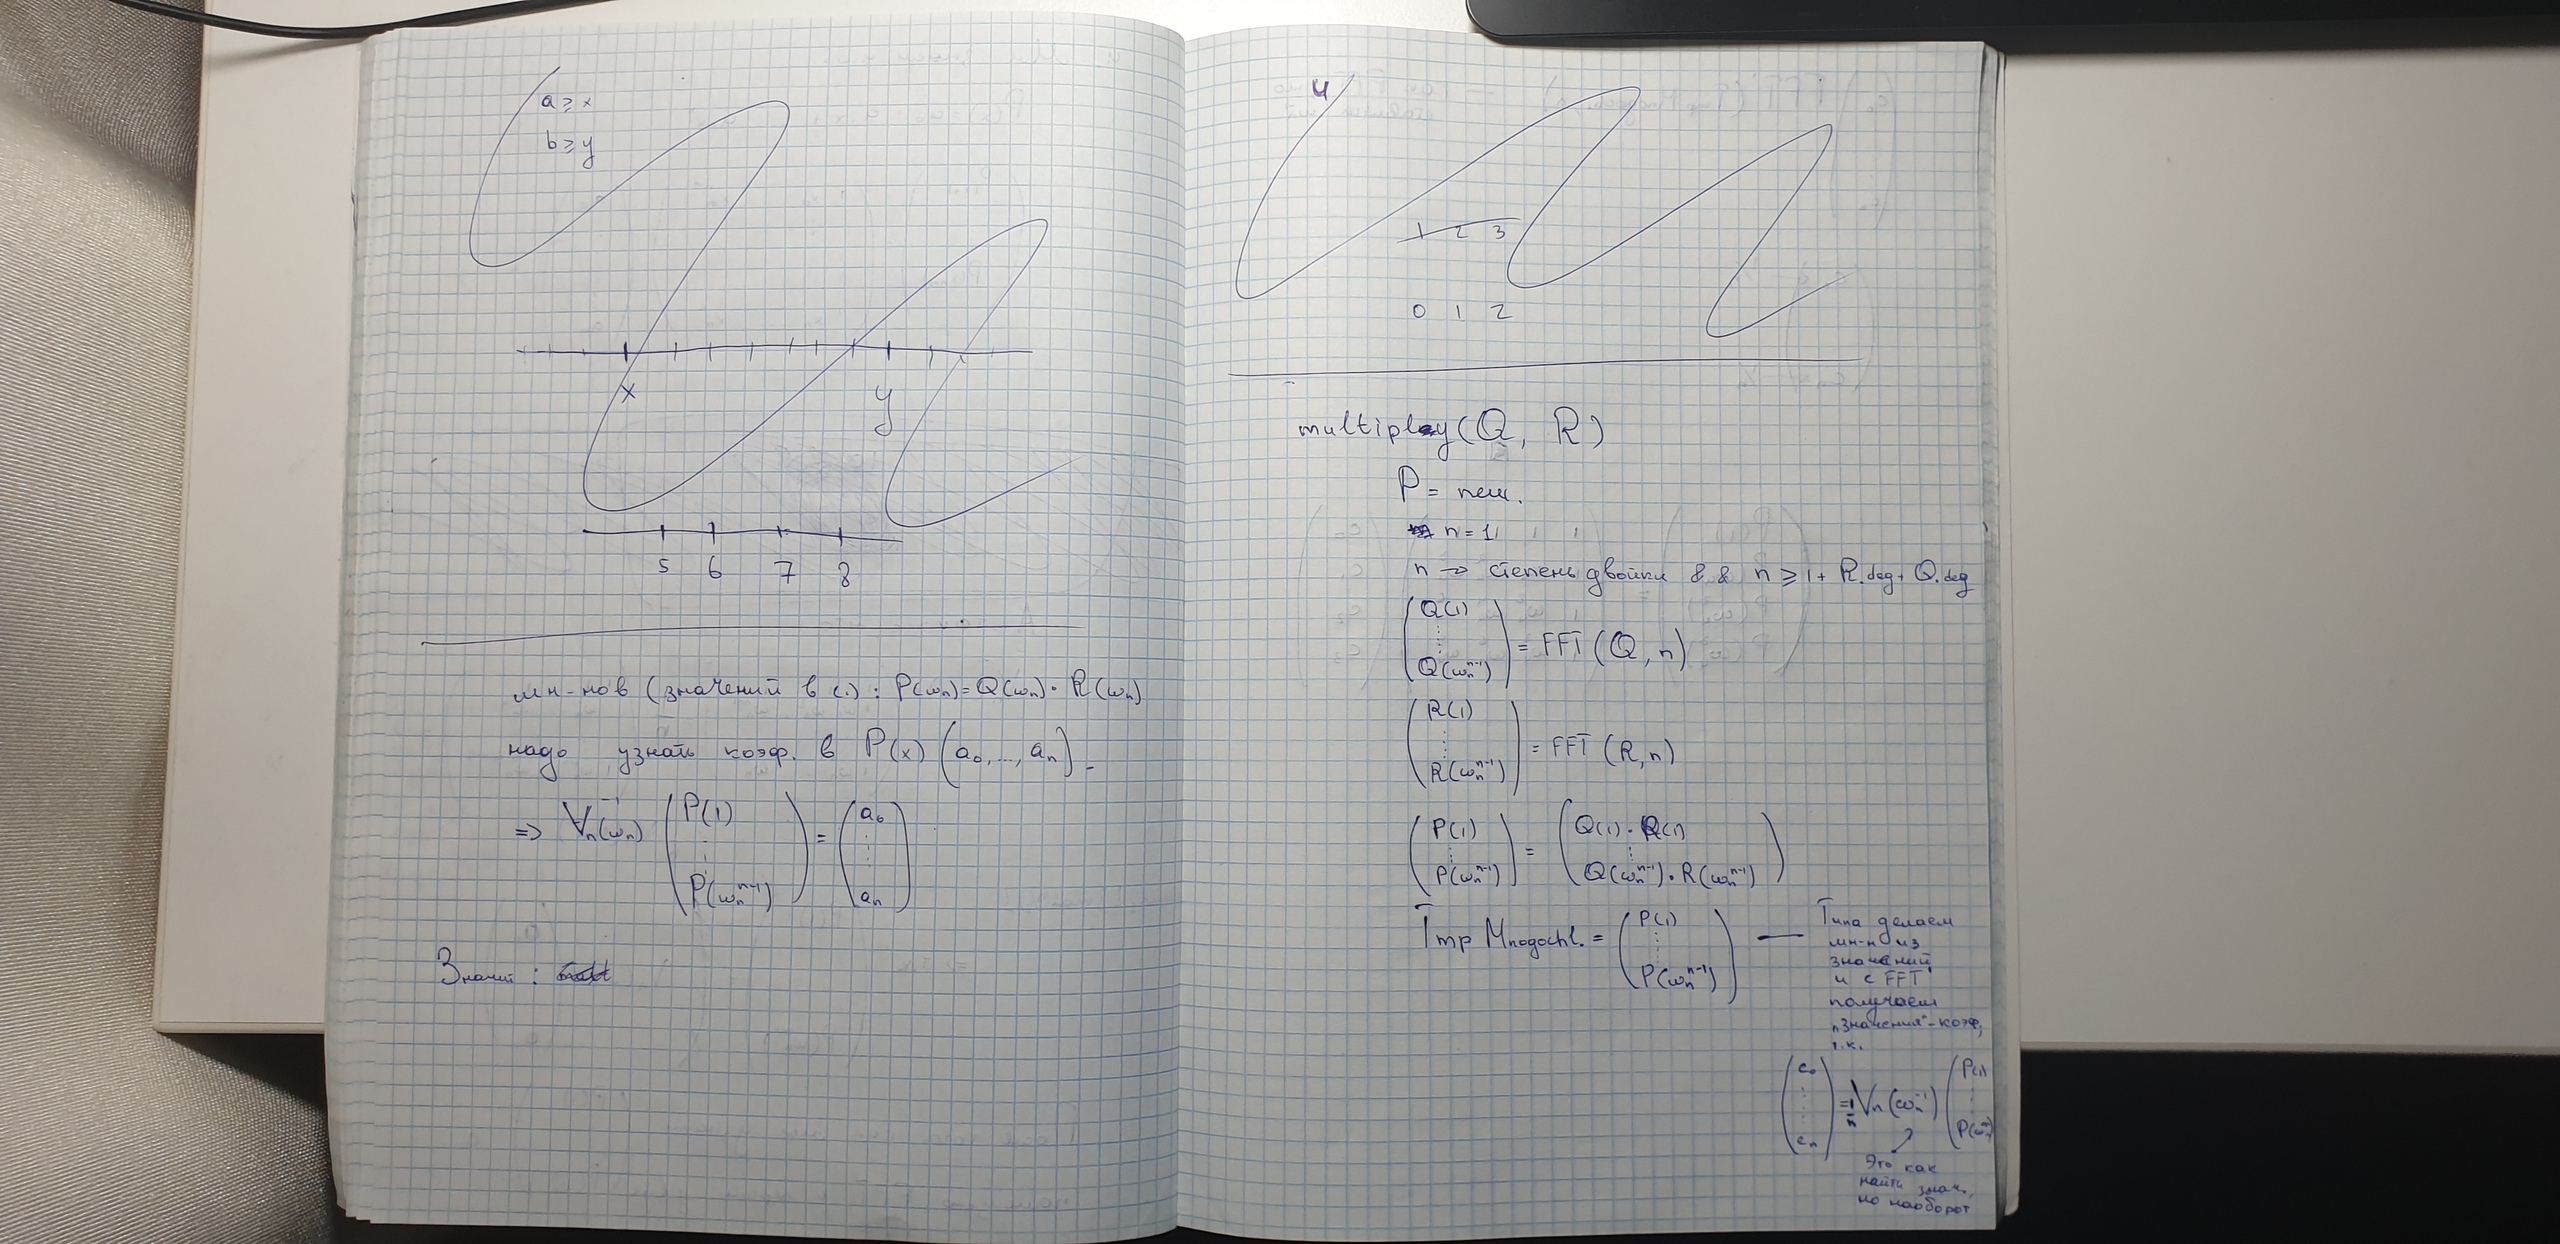 a ≥ x
b ≥ y
x y
5 6 7 8
мн-нов (значений в (·) : P(ωₙ) = Q(ωₙ) · R(ωₙ)
надо узнать коэф. в P(x) (a₀, ..., aₙ)
=> Vₙ⁻¹(ωₙ) (P(1) ⋮ P(ωₙⁿ⁻¹)) = (a₀ ⋮ aₙ)
Значит :
4
1 2 3
0 1 2
multiply(Q, R)
P = new.
n = 1
n → степень двойки && n ≥ 1 + R.deg + Q.deg
(Q(1) ⋮ Q(ωₙⁿ⁻¹)) = FFT (Q, n)
(R(1) ⋮ R(ωₙⁿ⁻¹)) = FFT (R, n)
(P(1) ⋮ P(ωₙⁿ⁻¹)) = (Q(1) · R(1) ⋮ Q(ωₙⁿ⁻¹) · R(ωₙⁿ⁻¹))
Tmp Mnogochl. = (P(1) ⋮ P(ωₙⁿ⁻¹)) —
Типа делаем
мн-н из
значений
и с FFT
получаем
„значения“-коэф,
т.к.
(c₀ ⋮ cₙ) = 1/n Vₙ(ωₙ⁻¹) (P(1) ⋮ P(ωₙⁿ⁻¹))
Это как
найти знач.,
но наоборот